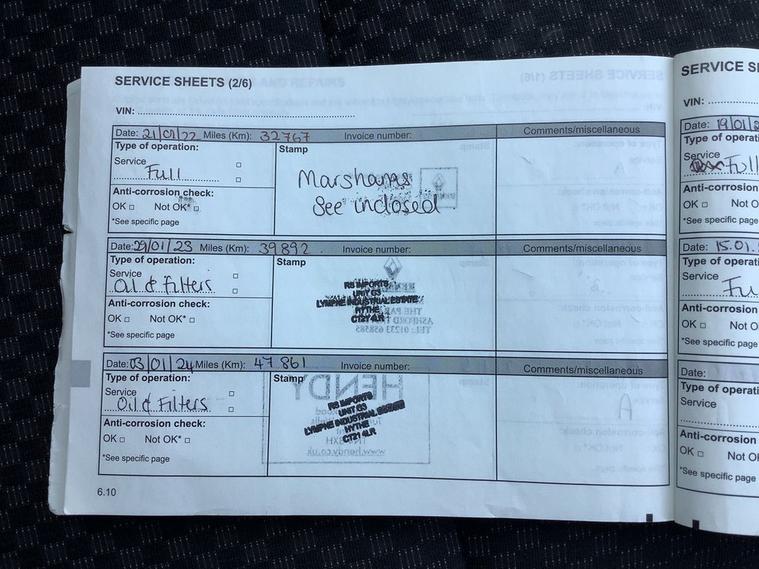 SERVICE SHEETS (2/6)
VIN:
Date: 21/01/22 Miles (Km): 32767 Invoice number: Comments/miscellaneous
Type of operation: Stamp
Service
Full
Marshams
See inclosed
Anti-corrosion check:
OK Not OK*
*See specific page
Date: 29/01/23 Miles (Km): 39892 Invoice number: Comments/miscellaneous
Type of operation: Stamp
Service
Oil & Filters
RS IMPORTS
UNIT G3
LYMPNE INDUSTRIAL ESTATE
HYTHE
CT21 4LR
Anti-corrosion check:
OK Not OK*
*See specific page
Date: 03/01/24 Miles (Km): 47861 Invoice number: Comments/miscellaneous
Type of operation: Stamp
Service
Oil & Filters
RS IMPORTS
UNIT G3
LYMPNE INDUSTRIAL ESTATE
HYTHE
CT21 4LR
Anti-corrosion check:
OK Not OK*
*See specific page
6.10
SERVICE
VIN:
Date: 19/01/
Type of
Service
Full
Anti-corrosion
OK Not
*See specific page
Date: 15.01.
Type of
Service
Anti-corrosion
OK Not
*See specific page
Date:
Type of
Service
Anti-corrosion
OK Not
*See specific page